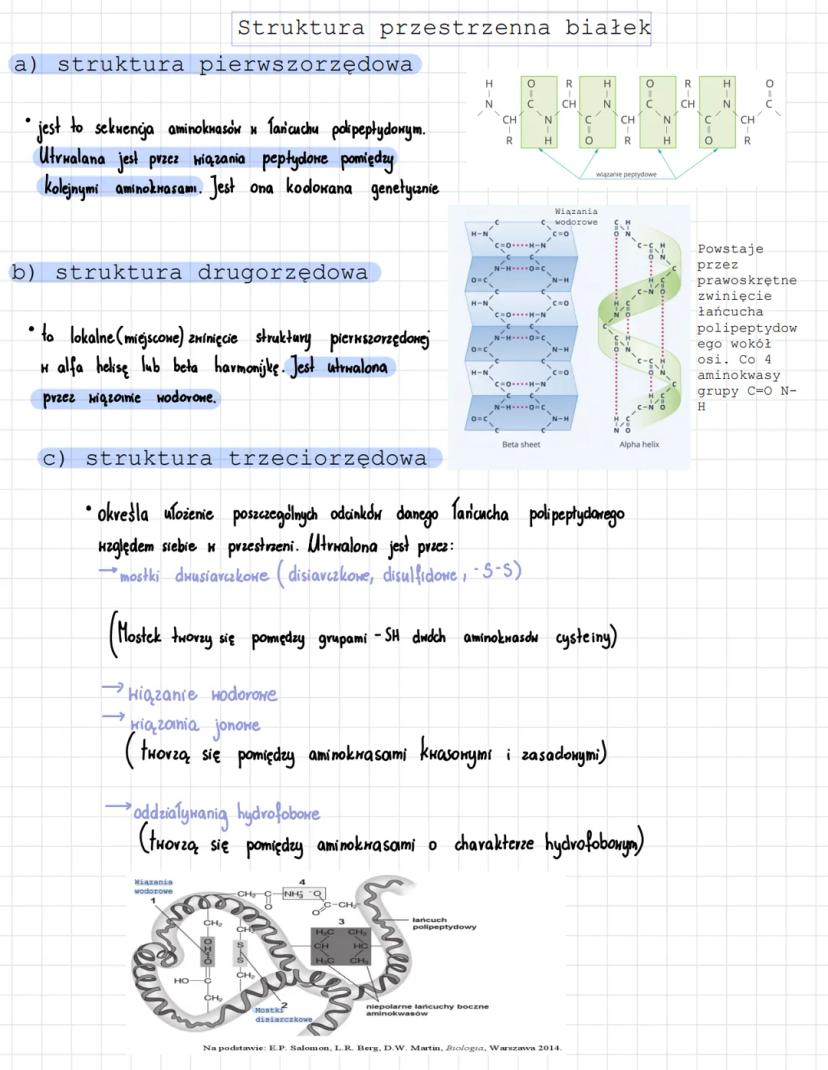 Struktura przestrzenna białek
a) struktura pierwszorzędowa
• jest to sekwencja aminokwasów w łańcuchu polipeptydowym.
Utrwalana jest przez wiązania peptydowe pomiędzy
kolejnymi aminokwasami. Jest ona kodowana genetycznie
H O R H O R H O
N C CH N C CH N C
CH N C CH N C CH
R H O R H O R
wiązanie peptydowe
b) struktura drugorzędowa
• to lokalne (miejscowe) zwinięcie struktury pierwszorzędowej
w alfa helisę lub beta harmonijkę. Jest utrwalona
przez wiązanie wodorowe.
Wiązania
wodorowe
Beta sheet
Alpha helix
Powstaje
przez
prawoskrętne
zwinięcie
łańcucha
polipeptydow
ego wokół
osi. Co 4
aminokwasy
grupy C=O N-
H
c) struktura trzeciorzędowa
• określa ułożenie poszczególnych odcinków danego łańcucha polipeptydowego
względem siebie w przestrzeni. Utrwalona jest przez:
→ mostki dwusiarczkowe (disiarczkowe, disulfidowe, -S-S)
(Mostek tworzy się pomiędzy grupami -SH dwóch aminokwasów cysteiny)
→ wiązanie wodorowe
→ wiązania jonowe
(tworzą się pomiędzy aminokwasami kwasowymi i zasadowymi)
→ oddziaływania hydrofobowe
(tworzą się pomiędzy aminokwasami o charakterze hydrofobowym)
Wiązania
wodorowe
1
4
3
łańcuch
polipeptydowy
2
Mostki
disiarczkowe
niepolarne łańcuchy boczne
aminokwasów
Na podstawie: E.P. Salomon, L.R. Berg, D.W. Martin, Biologia, Warszawa 2014.